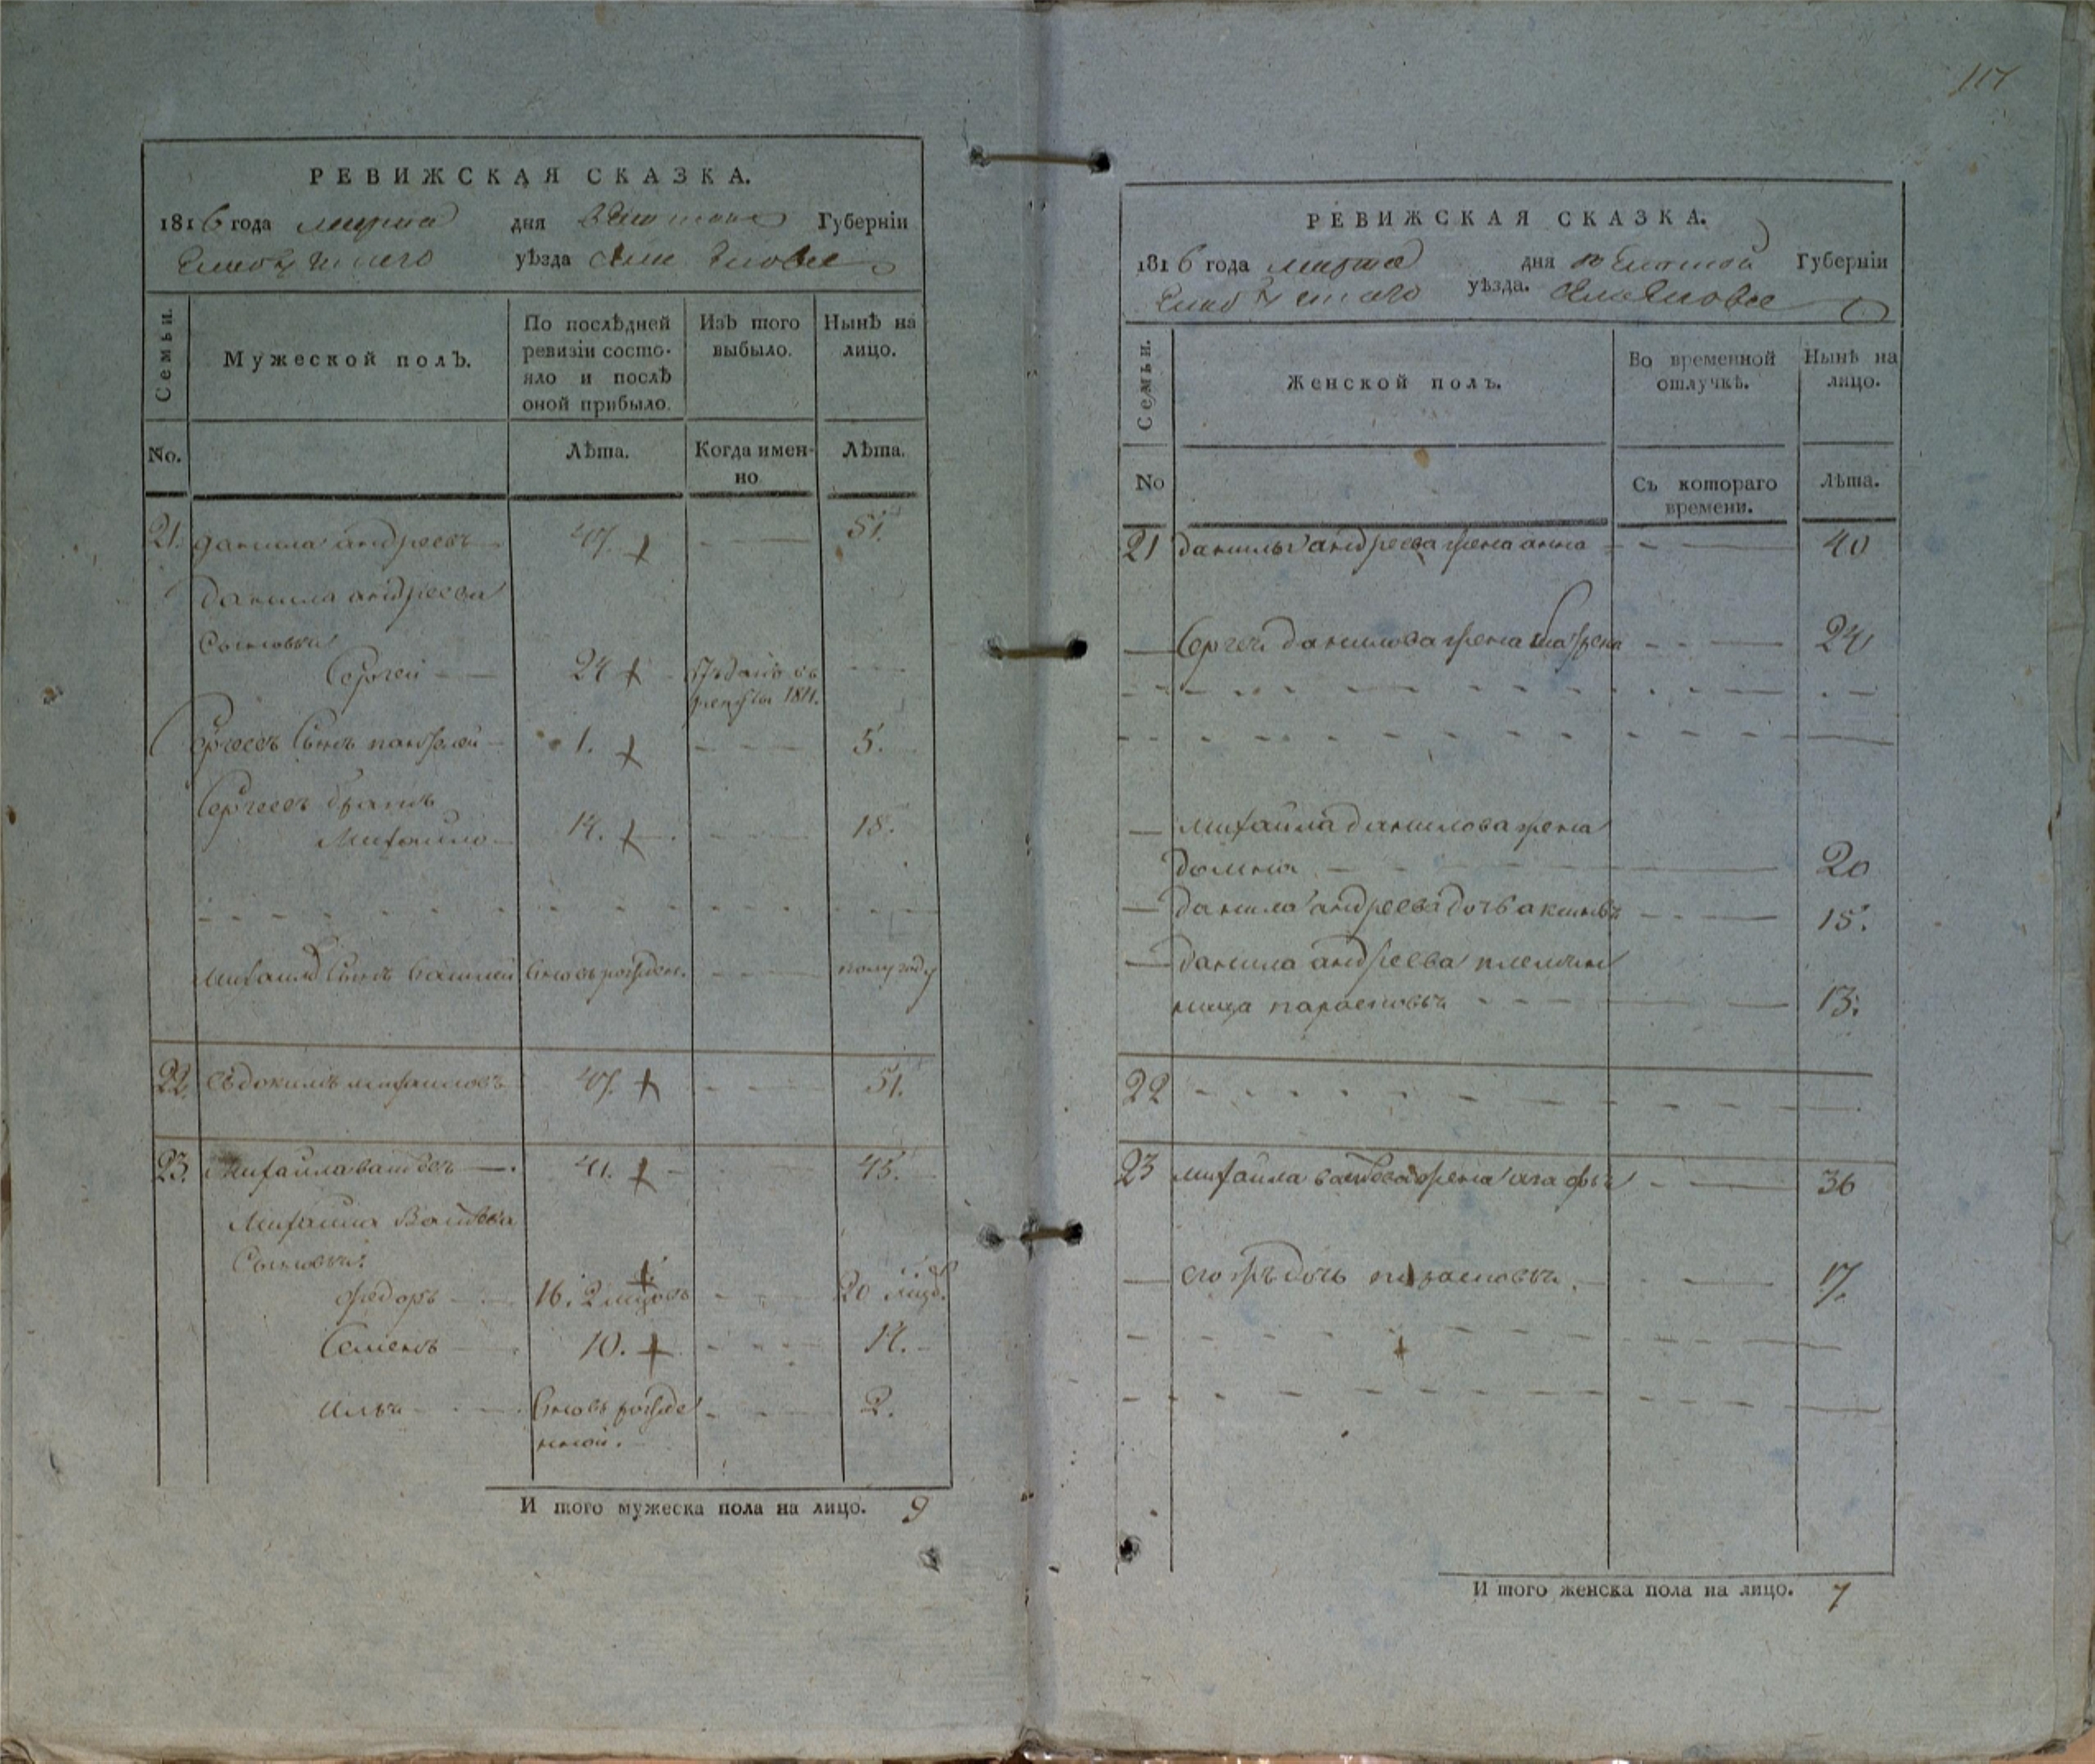 117
РЕВИЖСКАЯ СКАЗКА.
1816 года марта дня Губерніи
уѣзда
Семьи.
Мужеской полъ.
По послѣдней ревизіи состо-
яло и послѣ
оной прибыло.
Изъ того
выбыло.
Нынѣ на
лицо.
No.
Лѣта.
Когда имен-
но
Лѣта.
21. данила андреевъ 47. 51.
данила андреева
Сыновья
Сергей 24 отданъ въ
рекруты 1811.
Сергеевъ Сынъ панфилей 1. 5.
Сергеевъ братъ
Михайло 14. 18.
Сынъ вновь рожден. полугоду
22. Евдокимъ михаиловъ 47. 51.
23. Михайла 41. 45.
Михаила
Сыновья:
федоръ 16. 20
Семенъ 10. 14.
илья вновь рожде
нной. 2.
И того мужеска пола на лицо. 9
РЕВИЖСКАЯ СКАЗКА.
1816 года марта дня Губерніи
уѣзда.
Семьи.
Женской полъ.
Во временной
отлучкѣ.
Нынѣ на
лицо.
No
Съ котораго
времени.
Лѣта.
21 данилы андреева жена анна 40
Сергея данилова жена 24
михайла данилова жена
домна 20
данила андреева дочь 18.
данила андреева племян
ница парасковья 13.
22
23 михайла жена агафья 36
его жъ дочь парасковья 17.
И того женска пола на лицо. 7